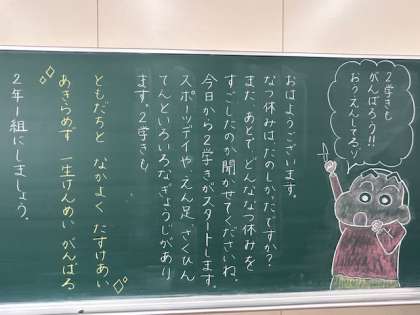 2学きも
がんばろう!!
おうえんしてるゾ
おはようございます。
なつ休みはたのしかったですか?
また、あとで、どんななつ休みを
すごしたのか聞かせてくださいね。
今日から2学きがスタートします。
スポーツデイやえん足、さくひん
てんといろいろなぎょうじがあり
ます。2学きも
ともだちと なかよく たすけあい
あきらめず 一生けんめい がんばる
2年1組にしましょう。